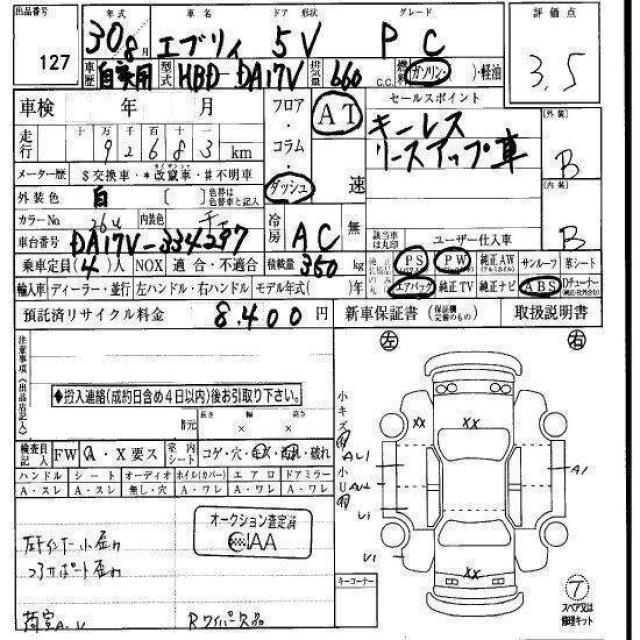 出品番号 年式 車名 ドア 形状 グレード 評価点
127 30 8月 エブリィ 5V PC 3.5
車歴 自家用 型式 HBD-DA17V 排気量 660 c.c. 燃料 ガソリン・( )・軽油
車検 年 月 フロア・コラム・ダッシュ AT 速 セールスポイント [外装] B
走行 十万千百十一 92683 km キーレス
リースアップ車
メーター歴 $交換車・*改竄車・#不明車 [内装] B
外装色 白 [ ] 色替は色替車名と記入
カラーNo. 26U 内装色 冷房 AC 無 該当車は丸印 ユーザー仕入車
車台番号 DA17V-334297
乗車定員(4)人 NOX 適合・不適合 積載量 350 kg PS PW 純正AW サンルーフ 革シート
輸入車 ディーラー・並行 左ハンドル・右ハンドル モデル年式( )年 エアバック 純正TV 純正ナビ ABS Dチューナー
預託済リサイクル料金 8,400 円 新車保証書 (保証欄完備のもの) 取扱説明書
注意事項(出品店記入)
◆搬入連絡(成約日含め4日以内)後お引取り下さい。
長さ 幅 高さ
× ×
左 右
小キズ
小凹
XX XX
AU1
A1
U1
U1
XX
検査員記入 FW A・X要ス 室内シート コゲ・穴・キズ・汚れ・破れ
ハンドル シート オーディオ ホイル(カバー) エアロ ドアミラー
A・スレ A・スレ 無し・穴 A・ワレ A・ワレ A・ワレ
オークション査定済
IAA
左Fインナー小歪み
コアサポート歪み
荷室A.U Rワイパー欠品
キーコーナー
T
スペア又は修理キット